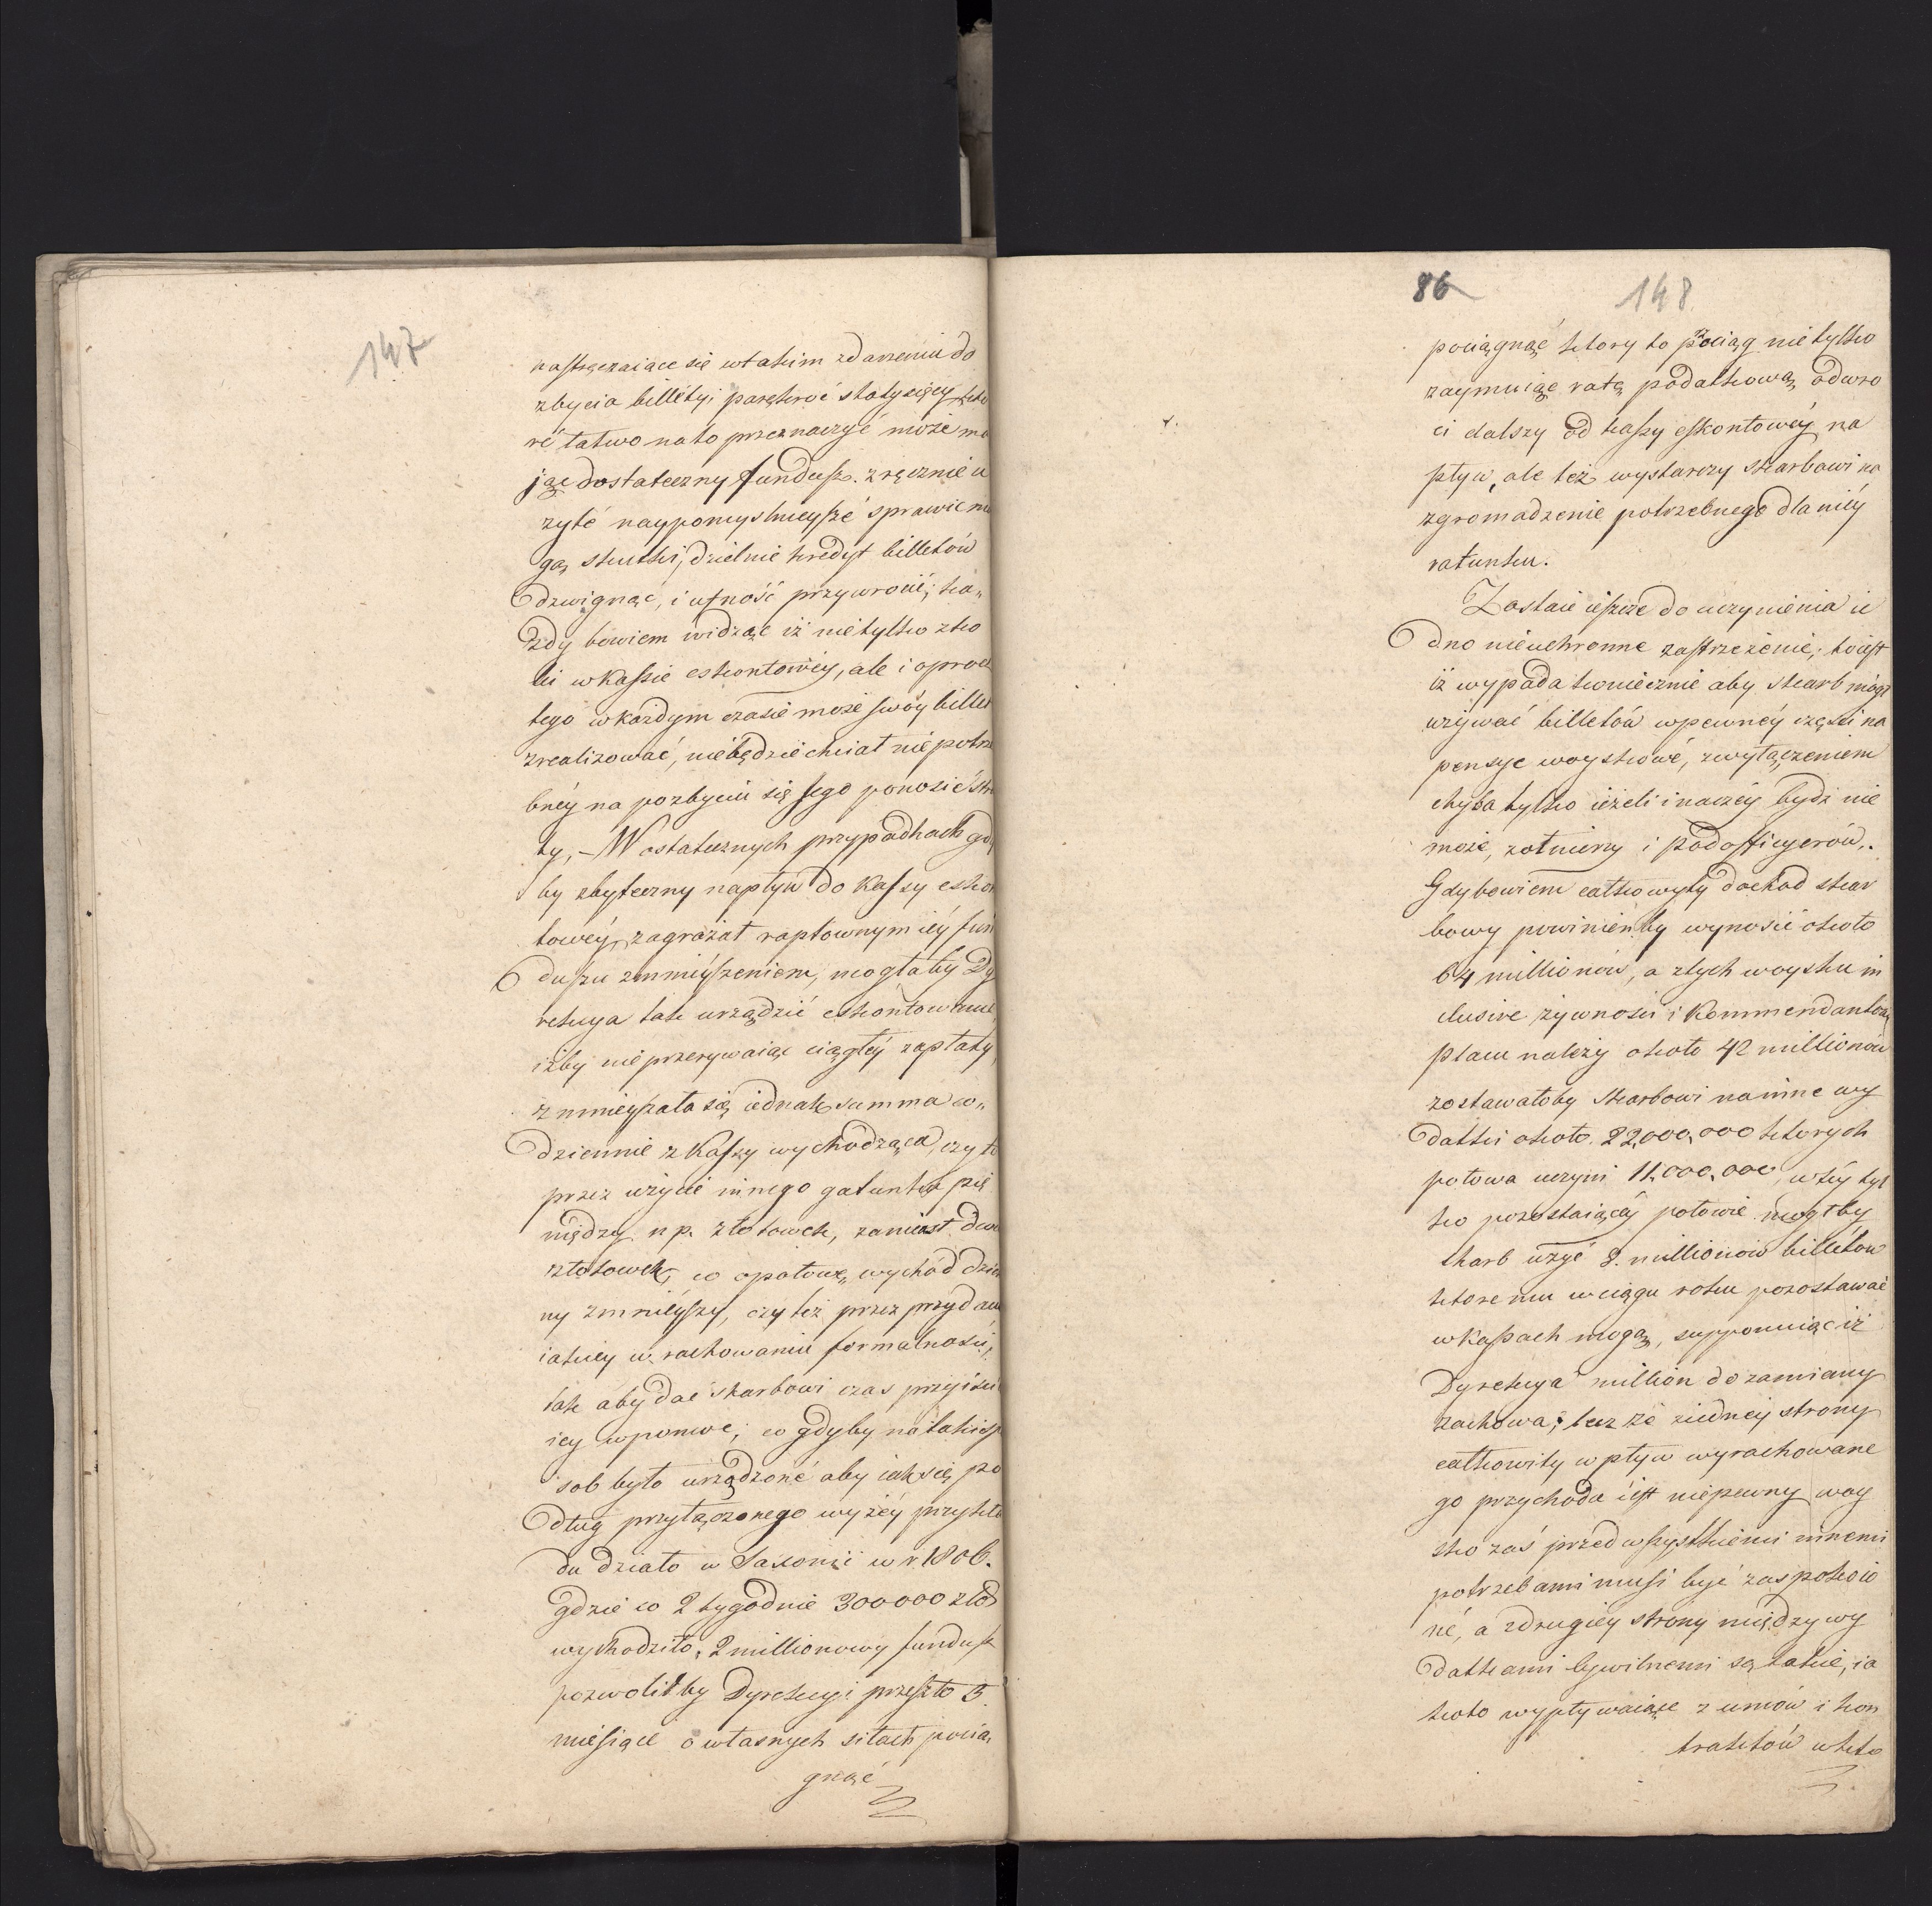 147
nastręczaiące się wtakim zdarzeniu do
zbycia billety; parękroć stotysięcy, któ
ré łatwo nato przeznaczyć może ma
jąc dostateczny fundusz. zręcznie u
żyté naypomyslnieyszé sprawić mo
gą skutki, dzielnie kredyt billetów
dzwignąć, i ufność przywrocić; ka„
żdy bowiem widząc iż nietylko zko
lei wkassie eskontowéy, ale i oprocz
tego wkażdym czasie może swóy billet
zrealizować, niebędzie chciał niepotrze
bnéy na pozbyciu się jego ponosić stra
ty, – W ostatecznych przypadkach gdy
by zbyteczny napływ do Kassy eskon
towéy, zagrażał raptownym iéy fun
duszu zmnieyszeniem, mogłaby Dy
rekcya tak urządzić eskontowanie
iżby nie przerywaiąc ciągłéy zapłaty,
zmnieyszała się iednak summa co„
dziennie z Kassy wychodząca, czy to
przez użycie innego gatunku pie
niędzy np. złotówek, zamiast dwu
złotówek, co opołowę wychód dzien
ny zmnieyszy, czy też przez przydanie
iakiey w rachowaniu formalności,
tak aby dać skarbowi czas przyiścia
iey wpomoc; co gdyby na takisp
osob było urządzoné aby iak się po
dług przyłączonego wyżéy przykła
du działo w Saxonii w r. 1806.
gdzie co 2 tygodnie 300000 złp
wychodziło, 2 millionowy fundusz
pozwoliłby Dyrekcyi przeszło 3.
miesiące o własnych siłach pocią„
gnąć
86 148
pociągnąć który to przeciąg nietylko
zaymuiąc ratę podatkową, odwro
ci dalszy od kassy eskontowéy na
pływ, ale też wystarczy skarbowi na
zgromadzenie potrzebnego dla niéy
ratunku.
Zostaie ieszcze do uczynienia ie
dno nieuchronne zastrzeżenie; toiest
iż wypada koniecznie aby skarb mógł
używać billetów wpewnéy części na
pensye woyskowé, zwyłączeniem
chyba tylko ieżeli inaczéy bydź nie
może, żołnierzy i podofficyerów.
Gdybowiem całkowyty dochod skar
bowy powinienby wynosić około
64 millionów, a ztych woysku in
clusive żywności i Kommendantów
placu należy około 42 millionów
zostawałoby Skarbowi na inne wy
datki około 22,000,000 których
połowa uczyni 11,000,000, wtéy tyl
ko pozostaiącéy połowie mógłby
skarb użyć 8. millionów billetów
któremu wciągu roku pozostawać
wkassach mogą, supponuiąc iż
Dyrekcya million do zamiany
zachowa; lecz że ziedney strony
całkowity wpływ wyrachowane
go przychodu iest niepewny woy
sko zaś przed wszystkiemi innemi
potrzebami musi być zaspokoio
né, a zdrugiey strony międzywy
datkami cywilnemi są takie, ia
koto wypływaiące z umów i kon
traktów wkto